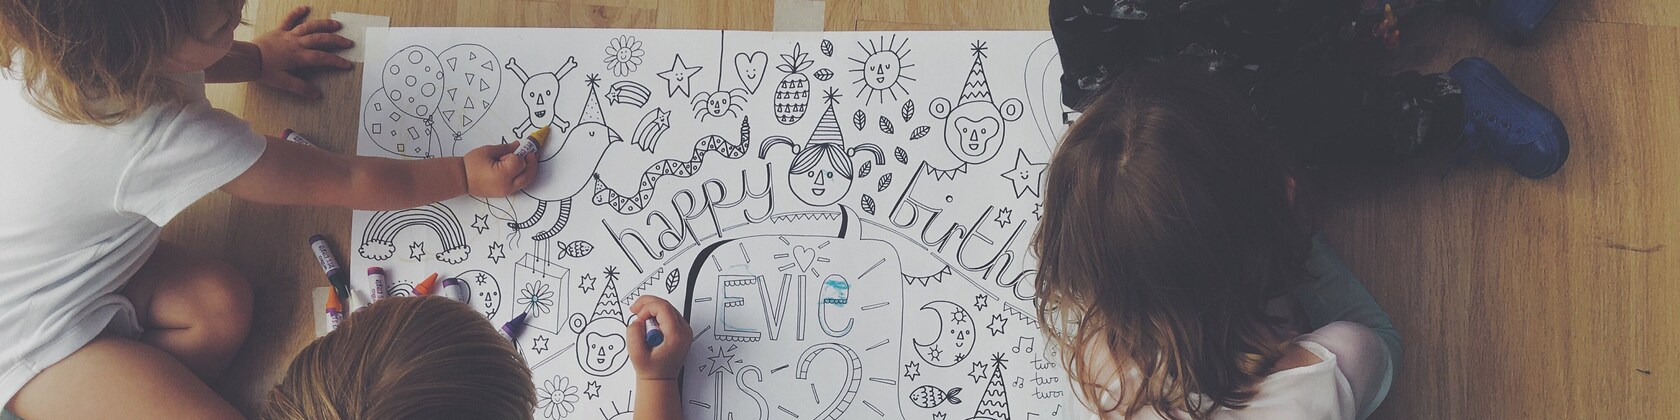 happy
EVIE
is 2
two
two
two